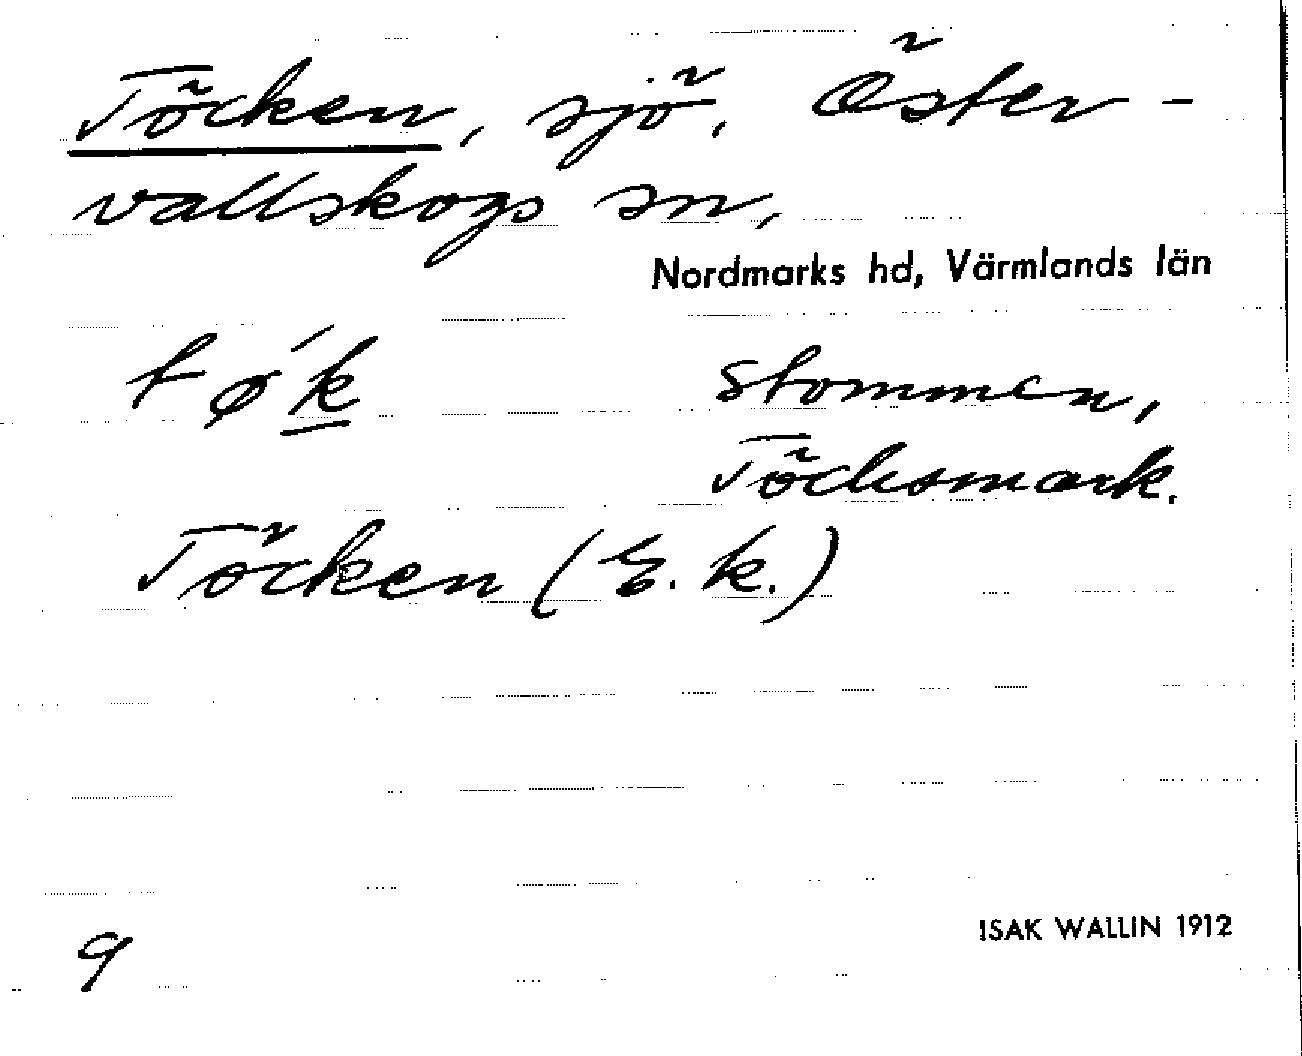 Töcken, sjö, Öster-
vallskogs sn,
Nordmarks hd, Värmlands län
tø´k stommen,
Töcksmark.
Töcken (E. k.)
9
ISAK WALLIN 1912